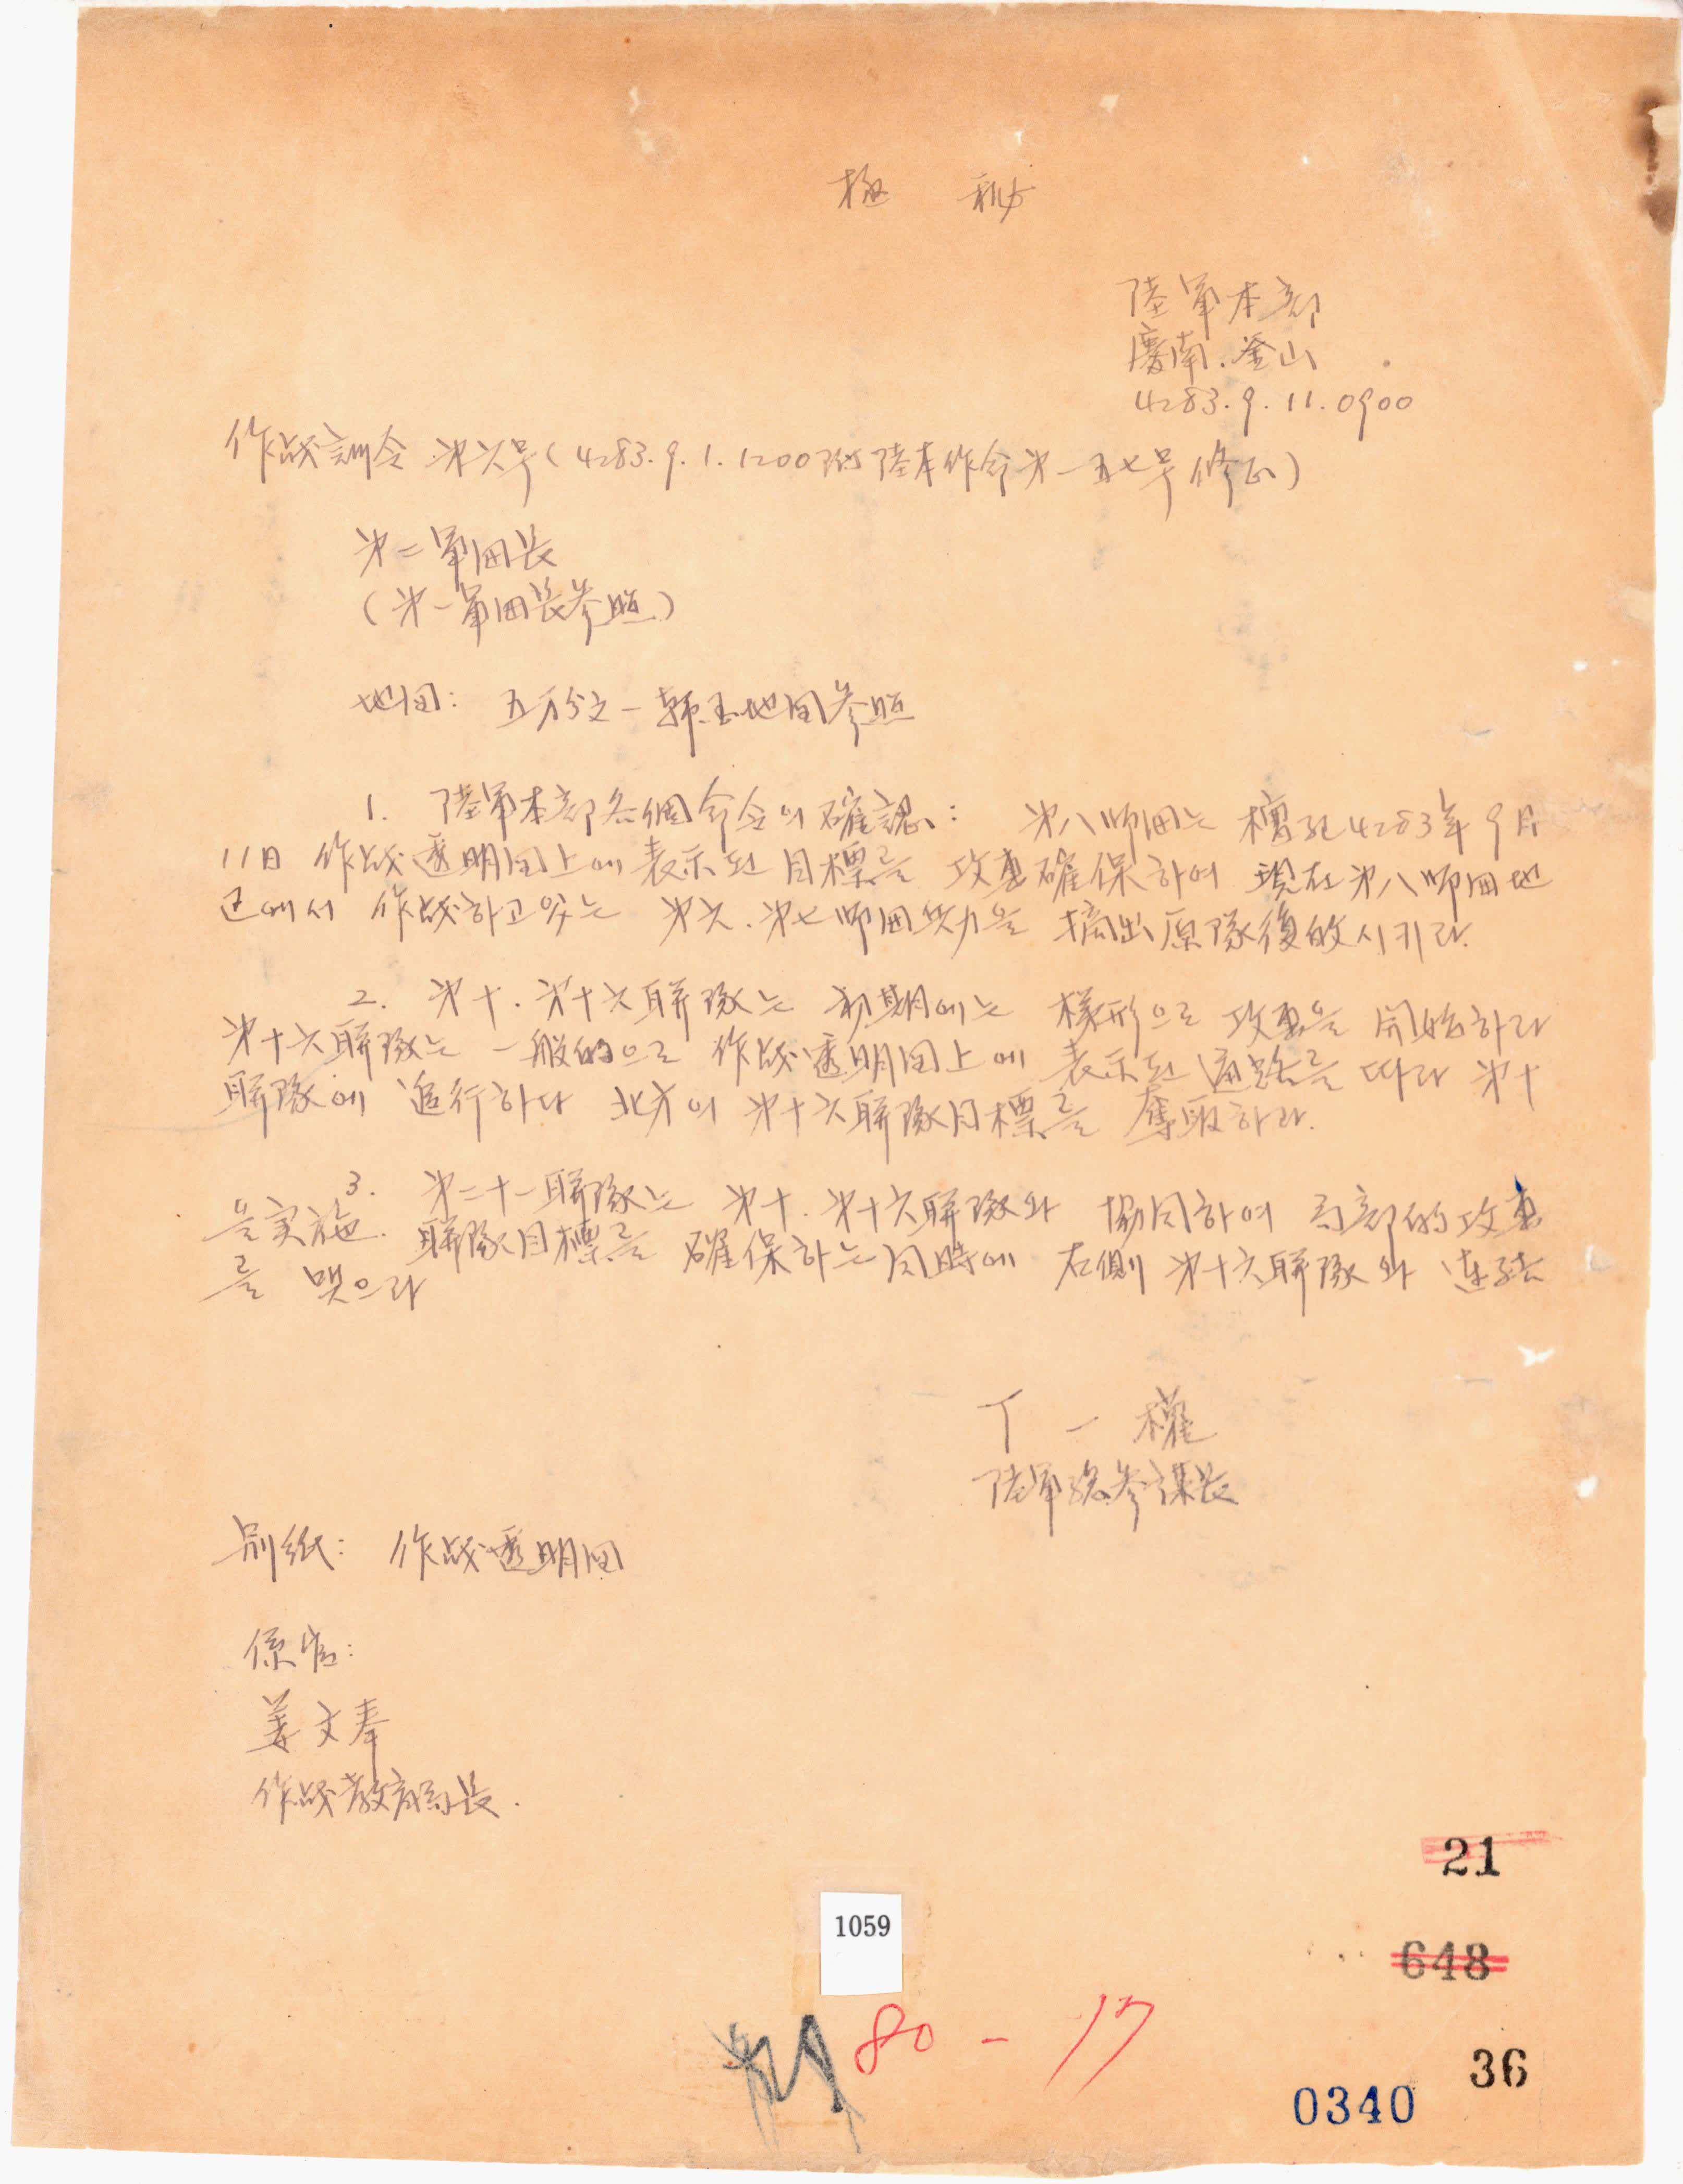 極 秘
陸軍本部
慶南.釜山
4283.9.11.0900
作战訓令 第六号(4283.9.1.1200附 陸本作命第一五七号 修正)
第二軍団長
(第一軍団長参照)
地図: 五万分之一韓国地図参照
1. 陸軍本部各個命令의 確認: 第八師団는 檀紀4283年9月
11日 作战透明図上에 表示된 目標를 攻撃確保하여 現在 第八師団地
区에서 作战하고있는 第六.第七師団兵力을 摘出 原隊復帰시키라.
2. 第十.第十六聯隊는 初期에는 梯形으로 攻撃을 開始하라
第十六聯隊는 一般的으로 作战透明図上에 表示된 通路를 따라 第十
聯隊에 追行하다 北方의 第十六聯隊目標를 奪取하라.
3. 第二十一聯隊는 第十.第十六聯隊와 協同하여 局部的攻撃
을 実施. 聯隊目標를 確保하는 同時에 右側 第十六聯隊와 連結
를 맺으라
丁 一 權
陸軍総参謀長
別紙: 作战透明図
係官:
姜文奉
作战教育局長.
21
648
1059
80-17
36
0340